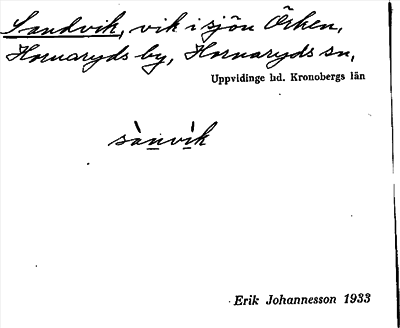 Sandvik, vik i sjön Örken,
Hornaryds by, Hornaryds sn,
Uppvidinge hd. Kronobergs län
sànvìk
Erik Johannesson 1933